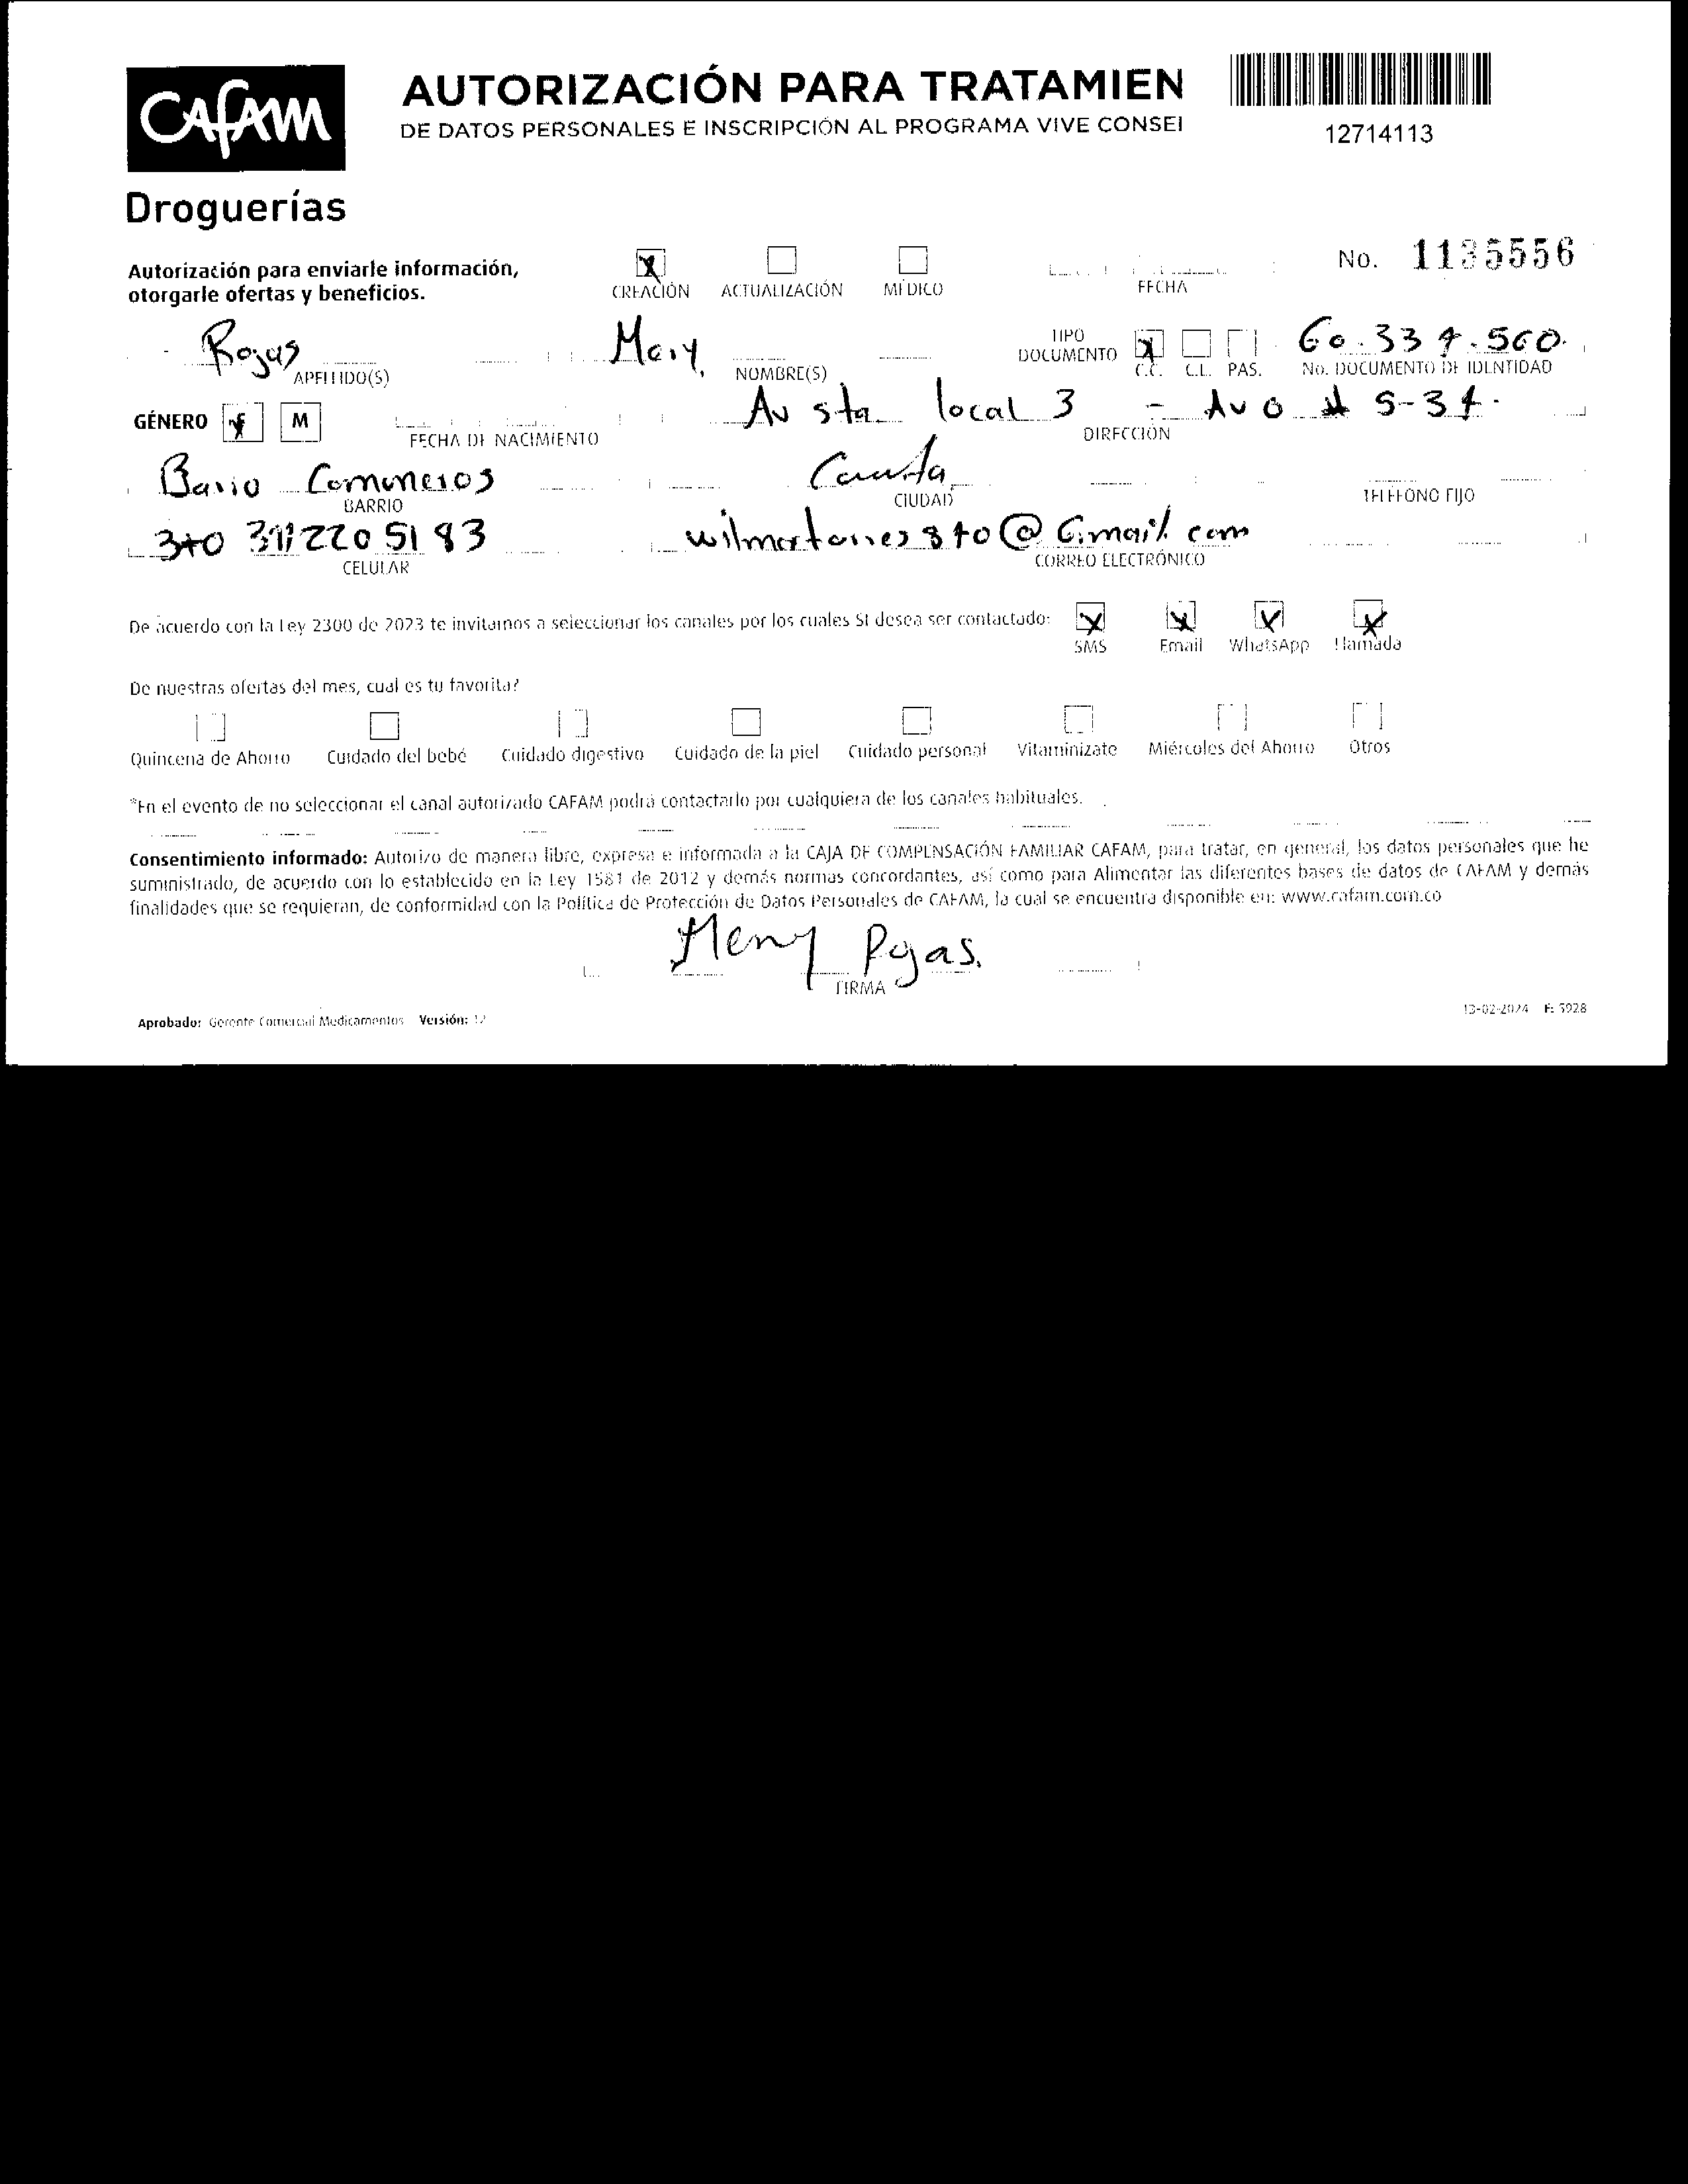 CAFAM
Droguerías
AUTORIZACIÓN PARA TRATAMIEN
DE DATOS PERSONALES E INSCRIPCIÓN AL PROGRAMA VIVE CONSEI
12714113
Autorización para enviarle información,
otorgarle ofertas y beneficios.
X CREACIÓN ACTUALIZACIÓN MÉDICO FECHA No. 1135556
Rojas APELLIDO(S)
NOMBRE(S)
TIPO DOCUMENTO X C.C. C.E. PAS.
No. DOCUMENTO DE IDENTIDAD
GÉNERO F M
FECHA DE NACIMIENTO
Av sta local 3 - Av 0 # 5-37.
DIRECCIÓN
Barrio Comuneros
BARRIO
CIUDAD
TELÉFONO FIJO
311220 51 83
CELULAR
CORREO ELECTRÓNICO
De acuerdo con la Ley 2300 de 2023 te invitamos a seleccionar los canales por los cuales SI desea ser contactado: X SMS X Email X WhatsApp X Llamada
De nuestras ofertas del mes, cual es tu favorita?
Quincena de Ahorro Cuidado del bebé Cuidado digestivo Cuidado de la piel Cuidado personal Vitaminízate Miércoles del Ahorro Otros
*En el evento de no seleccionar el canal autorizado CAFAM podrá contactarlo por cualquiera de los canales habituales.
Consentimiento informado: Autorizo de manera libre, expresa e informada a la CAJA DE COMPENSACIÓN FAMILIAR CAFAM, para tratar, en general, los datos personales que he
suministrado, de acuerdo con lo establecido en la Ley 1581 de 2012 y demás normas concordantes, así como para Alimentar las diferentes bases de datos de CAFAM y demás
finalidades que se requieran, de conformidad con la Política de Protección de Datos Personales de CAFAM, la cual se encuentra disponible en: www.cafam.com.co
Rojas.
FIRMA
Aprobado: Gerente Comercial Medicamentos Versión: 12
13-02-2024 F: 5928